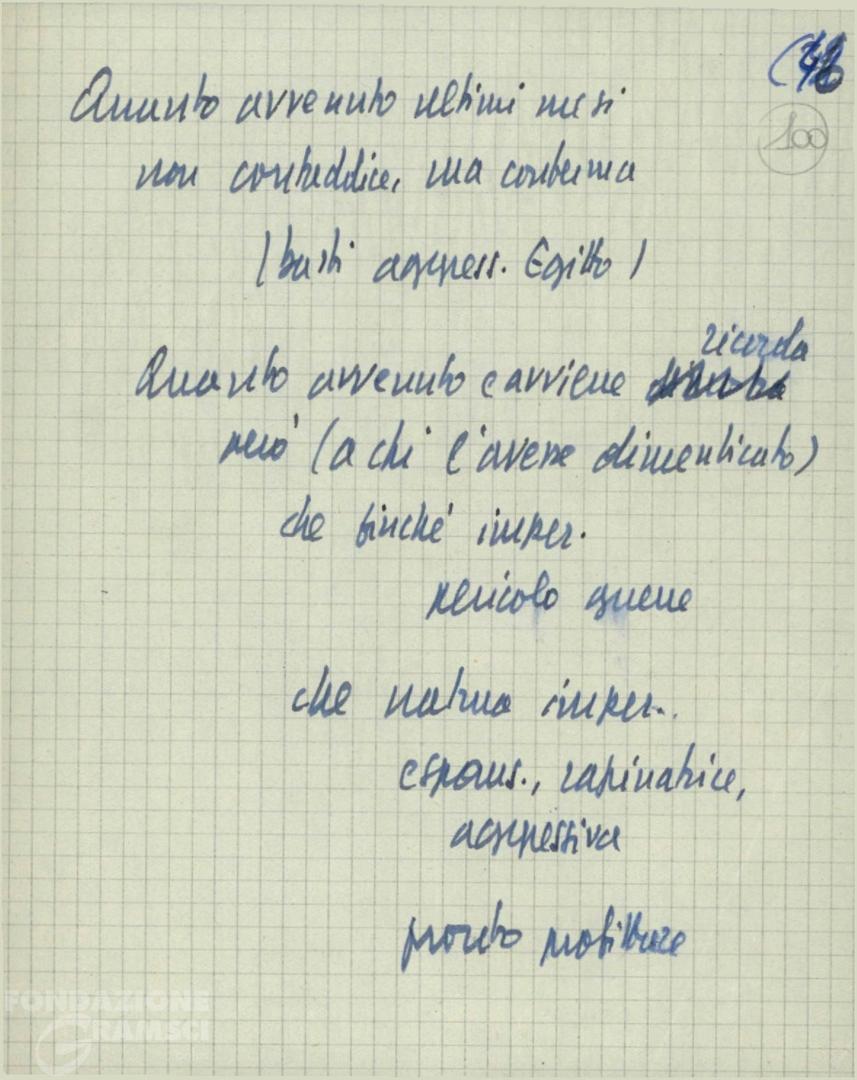 100
Quanto avvenuto ultimi mesi
non contraddice, ma conferma
(basti aggress. Egitto)
ricorda
Quanto avvenuto e avviene
però (a chi l'avesse dimenticato)
che finché imper.
pericolo guerre
che natura imper..
espans., rapinatrice,
aggressiva
pronto profittare
FONDAZIONE
GRAMSCI